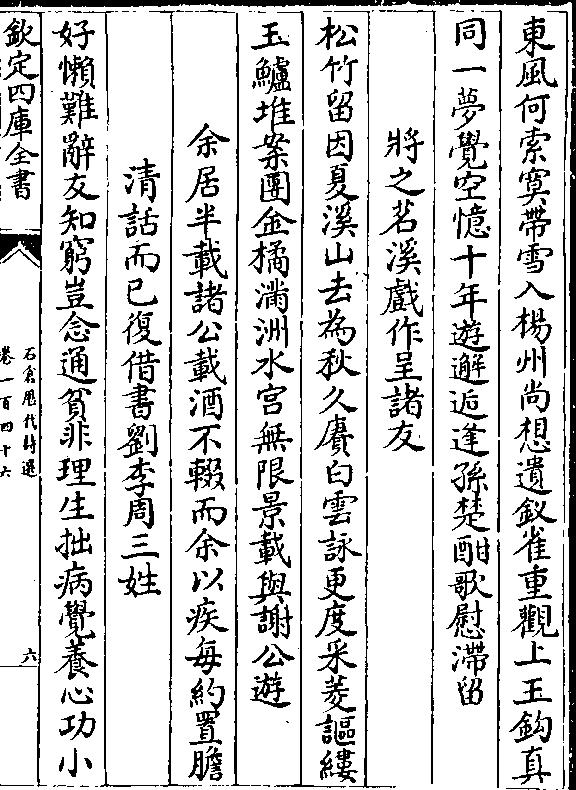 東風何索寞帶雪入楊州尚想遺釵雀重觀上玉鈎真
同一夢覺空憶十年遊邂逅逢孫楚酣歌慰滯留
將之苕溪戲作呈諸友
松竹留因夏溪山去為秋久賡白雲詠更度采菱謳縷
玉鱸堆案團金橘滿洲水宮無限景載與謝公遊
余居半載諸公載酒不輟而余以疾每約置膳
清話而已復借書劉李周三姓
好懶難辭友知窮豈念通貧非理生拙病覺養心功小
欽定四庫全書
石倉歷代詩選
卷一百四十六
六